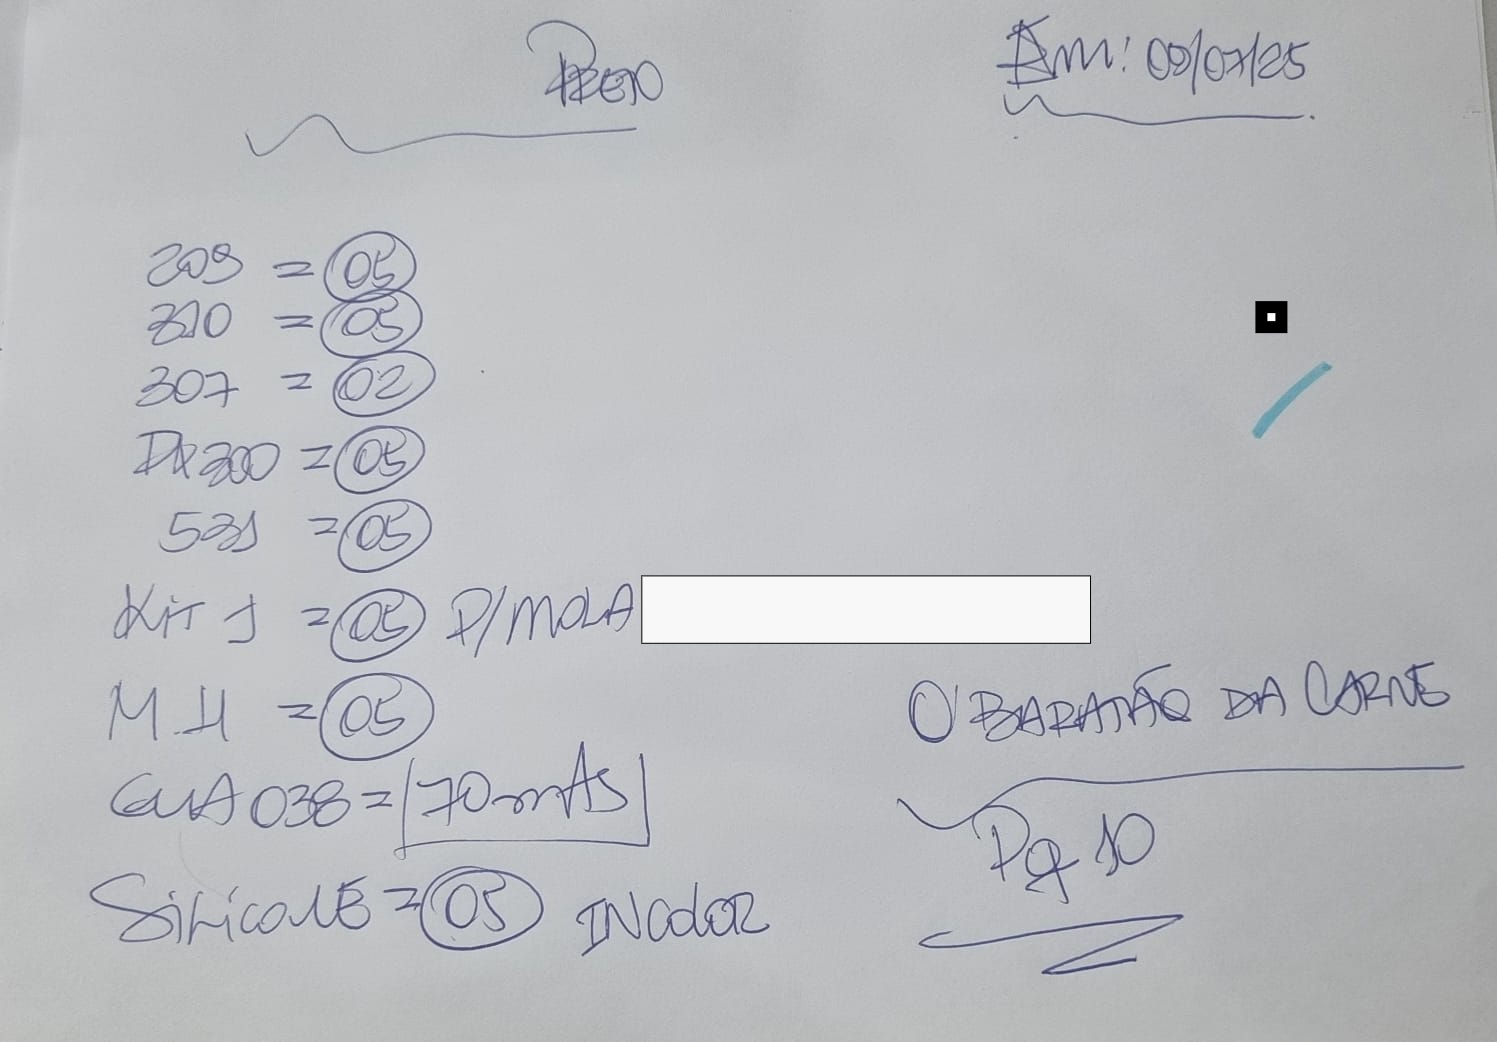 Em: 09/07/25
209 = 05
310 = 05
307 = 02
DX200 = 05
531 = 05
Kit 1 = 05 P/MOLA
M.H = 05
GUA 038 = 70 mts
Silicone = 05 INcoloR
O BARATÃO DA CARNE
Pq 10